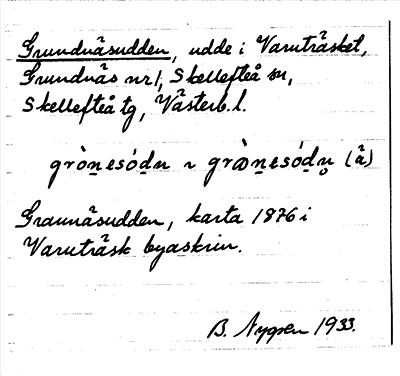 Grundnäsudden, udde i Varuträsket,
Grundnäs nr 1, Skellefteå sn,
Skellefteå tg, Västerb. l.
grònesódn ~ grònesódn (å)
Graunäsudden, karta 1876 i
Varuträsk byaskrin.
B. Nygren 1933.